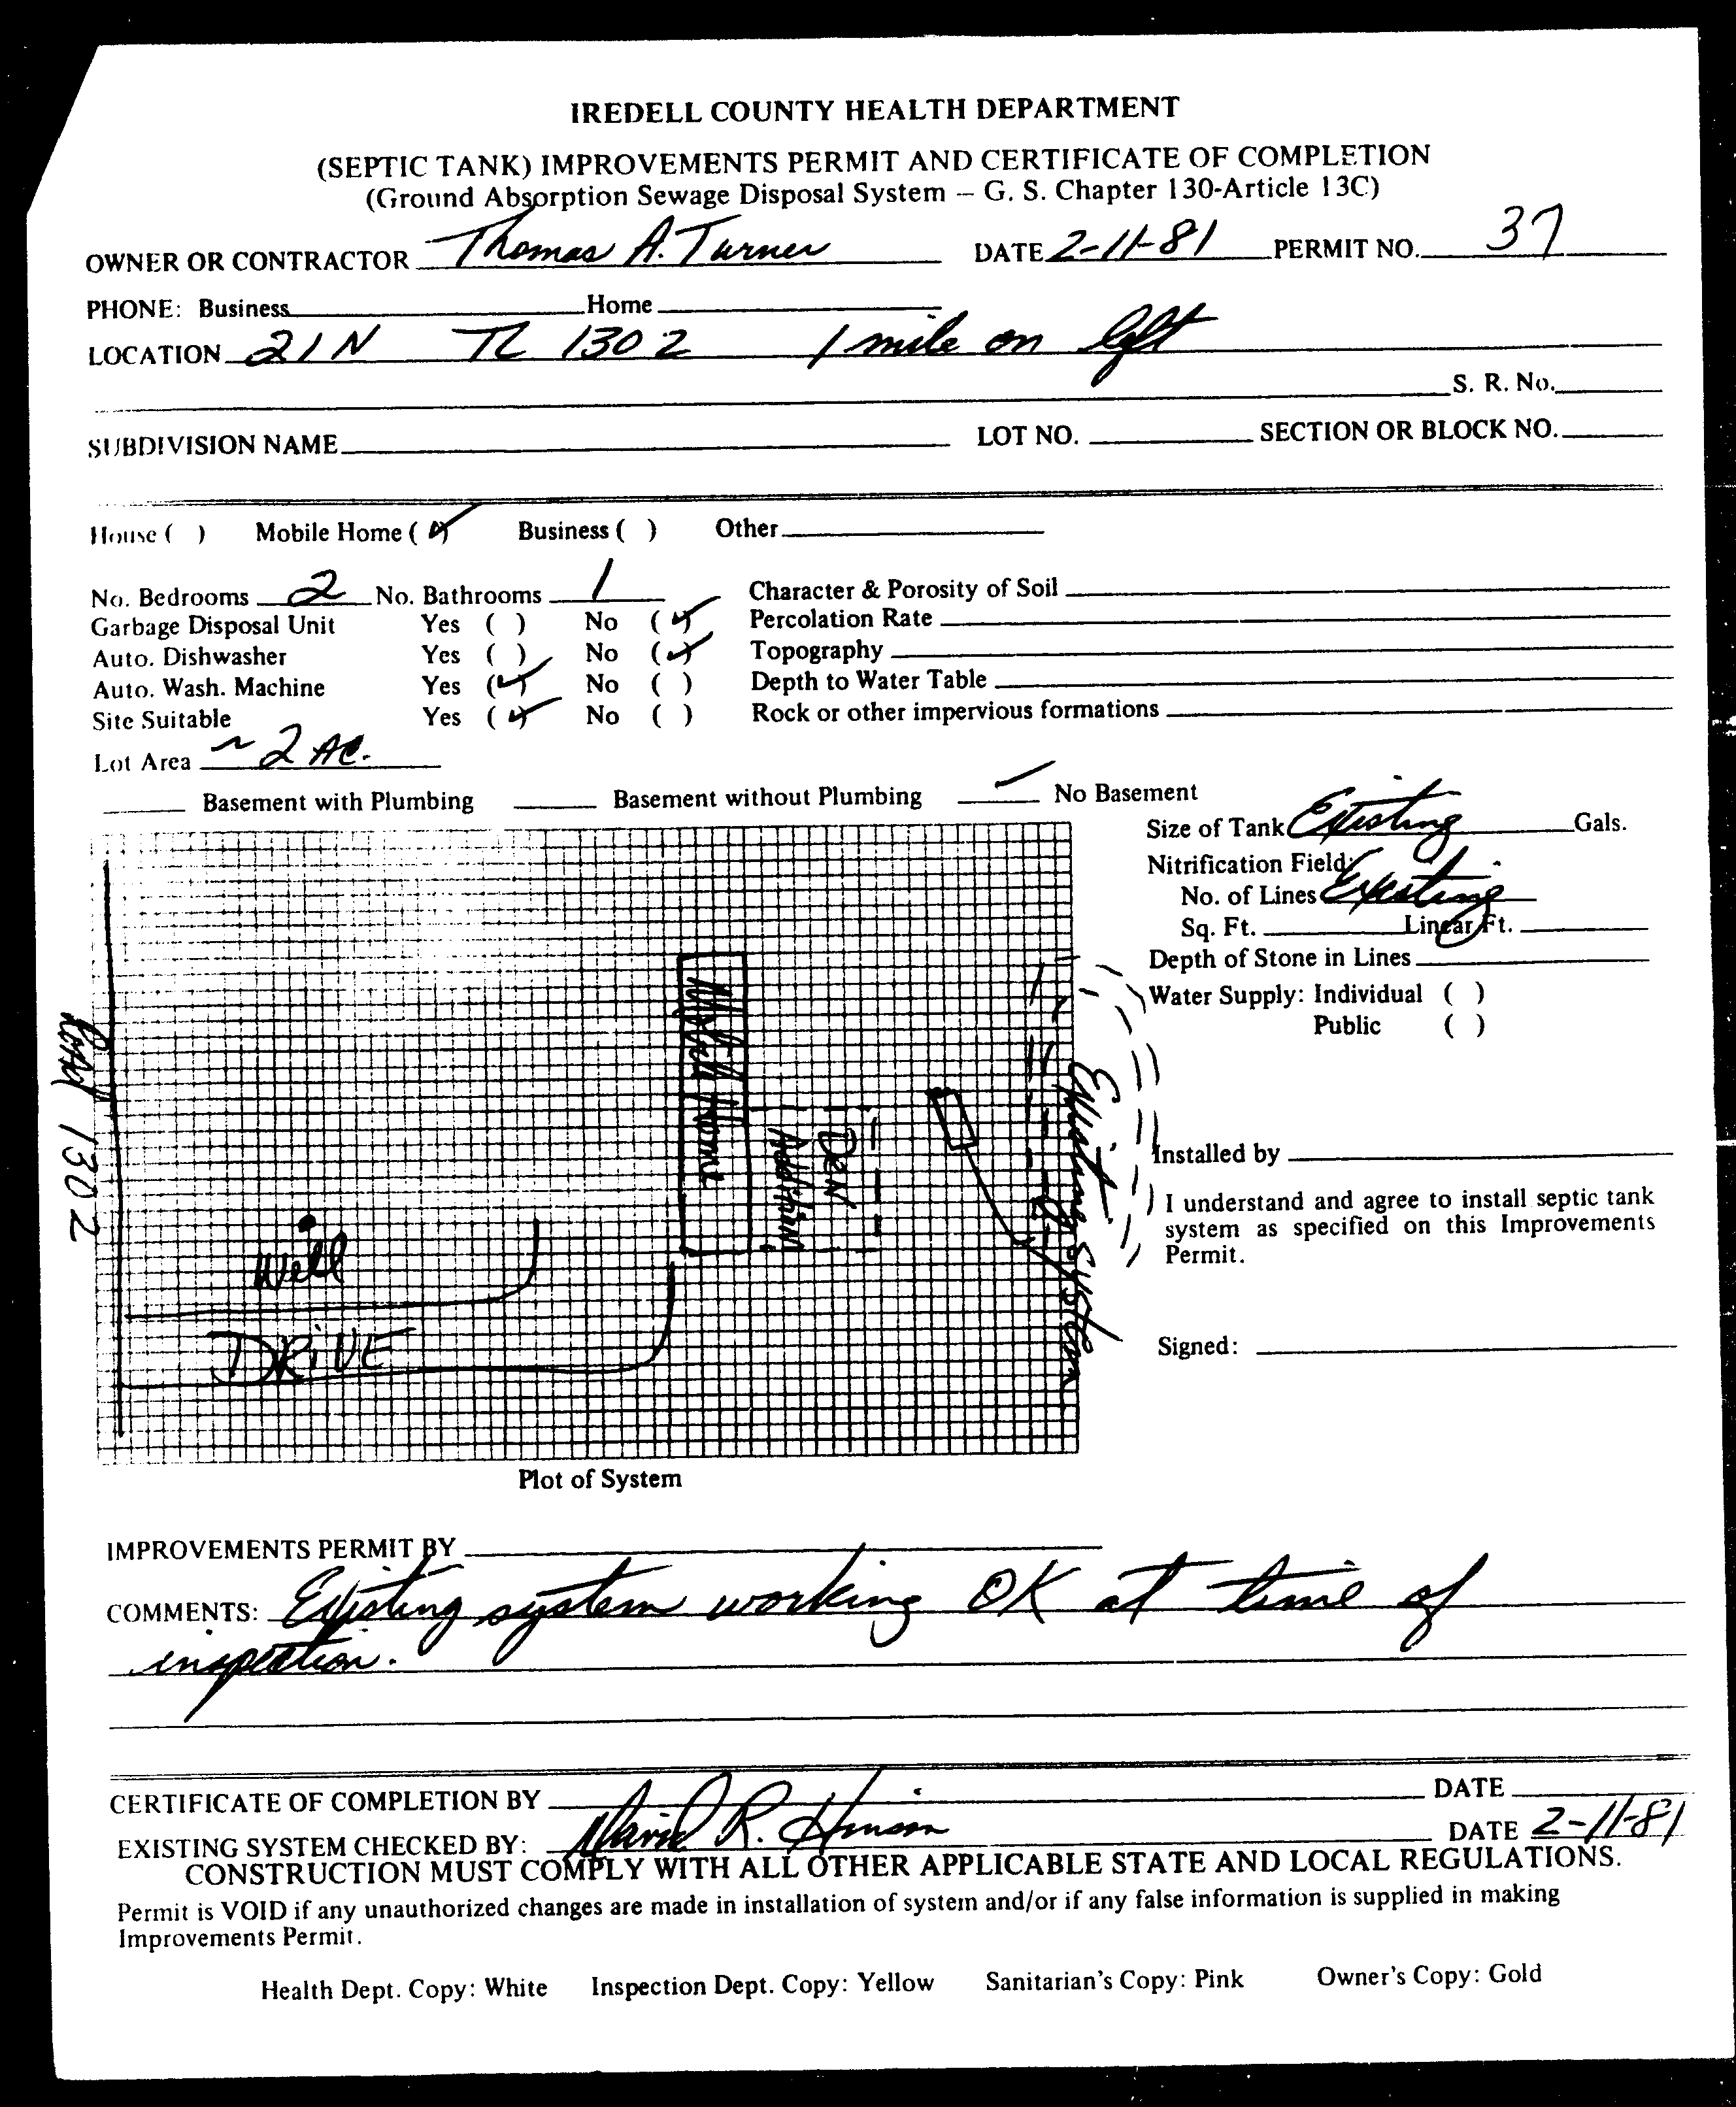 IREDELL COUNTY HEALTH DEPARTMENT
(SEPTIC TANK) IMPROVEMENTS PERMIT AND CERTIFICATE OF COMPLETION
(Ground Absorption Sewage Disposal System — G. S. Chapter 130-Article 13C)
OWNER OR CONTRACTOR Thomas A. Turner DATE 2-11-81 PERMIT NO. 37
PHONE: Business Home
LOCATION 21 N TL 1302 1 mile on left
S. R. No.
SUBDIVISION NAME LOT NO. SECTION OR BLOCK NO.
House ( ) Mobile Home (✓) Business ( ) Other
No. Bedrooms 2 No. Bathrooms 1 Character & Porosity of Soil
Garbage Disposal Unit Yes ( ) No (✓) Percolation Rate
Auto. Dishwasher Yes ( ) No (✓) Topography
Auto. Wash. Machine Yes (✓) No ( ) Depth to Water Table
Site Suitable Yes (✓) No ( ) Rock or other impervious formations
Lot Area ~ 2 AC.
Basement with Plumbing Basement without Plumbing ✓ No Basement
Size of Tank Existing Gals.
Nitrification Field:
No. of Lines Existing
Sq. Ft. Linear Ft.
Depth of Stone in Lines
Water Supply: Individual ( )
Public ( )
Installed by
I understand and agree to install septic tank
system as specified on this Improvements
Permit.
Signed:
Road 1302
Mobile Home
Den
Addition
Existing System
Well
DRIVE
Plot of System
IMPROVEMENTS PERMIT BY
COMMENTS: Existing system working OK at time of
inspection.
CERTIFICATE OF COMPLETION BY DATE
EXISTING SYSTEM CHECKED BY: David R. Hinson DATE 2-11-81
CONSTRUCTION MUST COMPLY WITH ALL OTHER APPLICABLE STATE AND LOCAL REGULATIONS.
Permit is VOID if any unauthorized changes are made in installation of system and/or if any false information is supplied in making
Improvements Permit.
Health Dept. Copy: White Inspection Dept. Copy: Yellow Sanitarian's Copy: Pink Owner's Copy: Gold